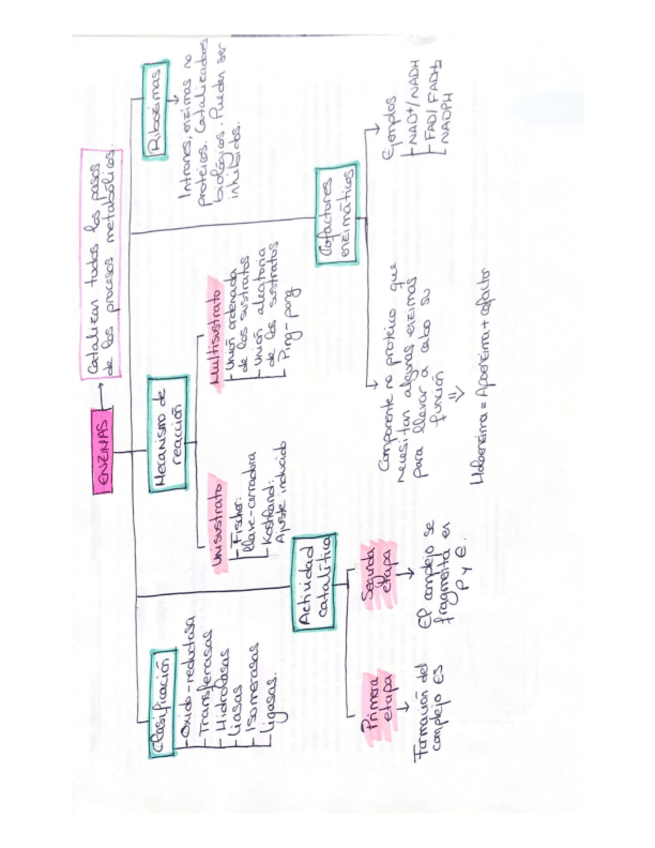 ENZIMAS
Catalizan todos los pasos
de los procesos metabólicos
Clasificación
- Oxido-reductasa
- Transferasas
- Hidrolasas
- Liasas
- Isomerasas
- Ligasas.
Mecanismo de
reacción
Unisustrato
- Fischer:
llave-cerradura
- Koshland:
Ajuste inducido
Multisustrato
- Unión ordenada
de los sustratos
- Unión aleatoria
de los sustratos
- Ping-pong
Ribozimas
Intrones, enzimas no
proteicos. Catalizadores
biológicos. Pueden ser
inhibidos.
Actividad
catalítica
Primera
etapa
Formación del
complejo ES
Segunda
etapa
El complejo se
fragmenta en
P y E.
Cofactores
enzimáticos
Componente no proteico que
necesitan algunas enzimas
para llevar a cabo su
función
Holoenzima = Apoenzima + cofactor
Ejemplos
- NAD+/NADH
- FAD/FADH2
- NADPH